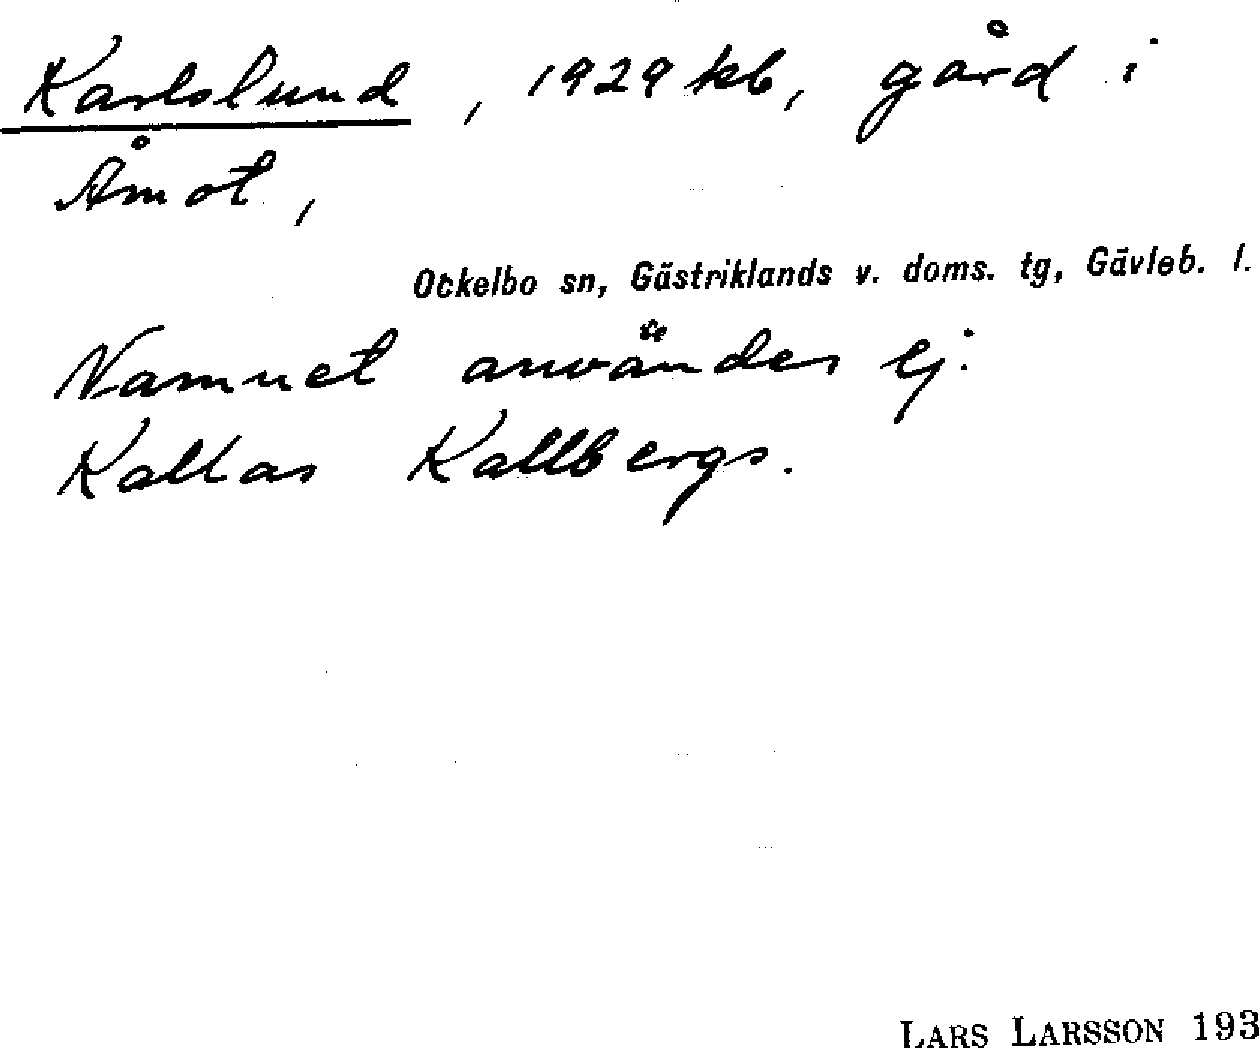 Karlslund, 1929 kb, gård i
Åmot,
Ockelbo sn, Gästriklands v. doms. tg, Gävleb. l.
Namnet användes ej.
Kallas Kallbergs.
LARS LARSSON 193